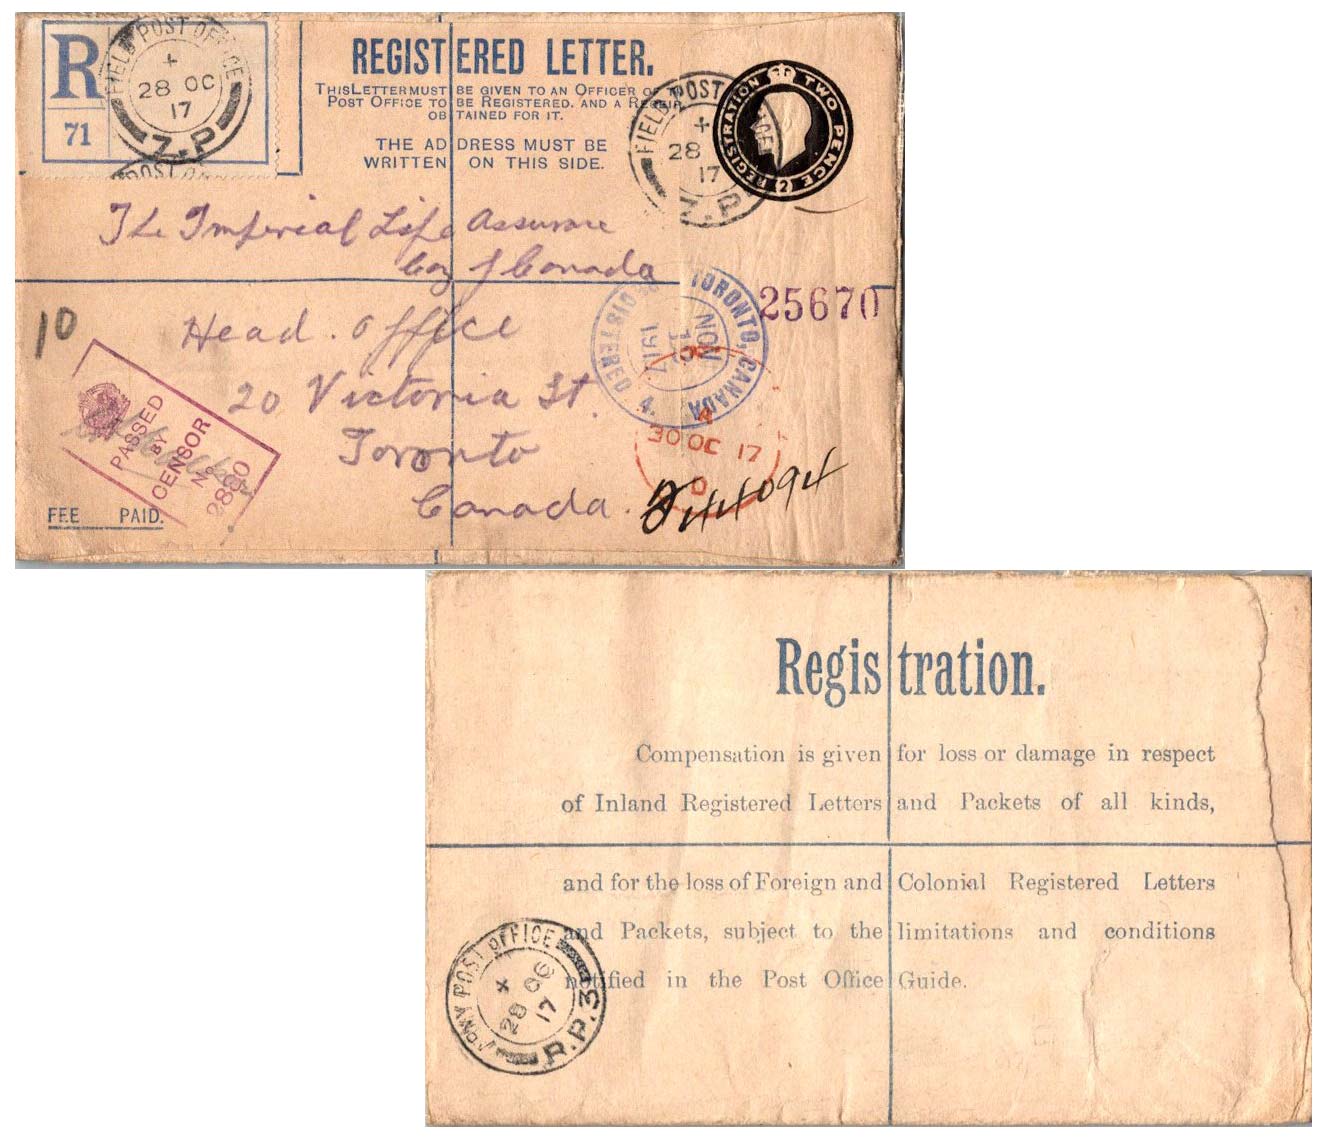 R
71
FIELD POST OFFICE
+
28 OC
17
Z.P
POST
REGISTERED LETTER.
THIS LETTER MUST BE GIVEN TO AN OFFICER OF
POST OFFICE TO BE REGISTERED, AND A RECEIP
OBTAINED FOR IT.
THE ADDRESS MUST BE
WRITTEN ON THIS SIDE.
FIELD POST
+
28
17
Z.P
REGISTRATION TWO PENCE (2)
The Imperial Life Assurance
Coy of Canada
Head. Office
20 Victoria St.
Toronto
Canada.
10
REGISTERED TORONTO, CANADA
NOV
1917
4.
25670
30 OC 17
D
PASSED
BY
CENSOR
No
2800
FEE PAID.
Registration.
Compensation is given for loss or damage in respect
of Inland Registered Letters and Packets of all kinds,
and for the loss of Foreign and Colonial Registered Letters
and Packets, subject to the limitations and conditions
notified in the Post Office Guide.
ARMY POST OFFICE
28 OC
17
R.P.3